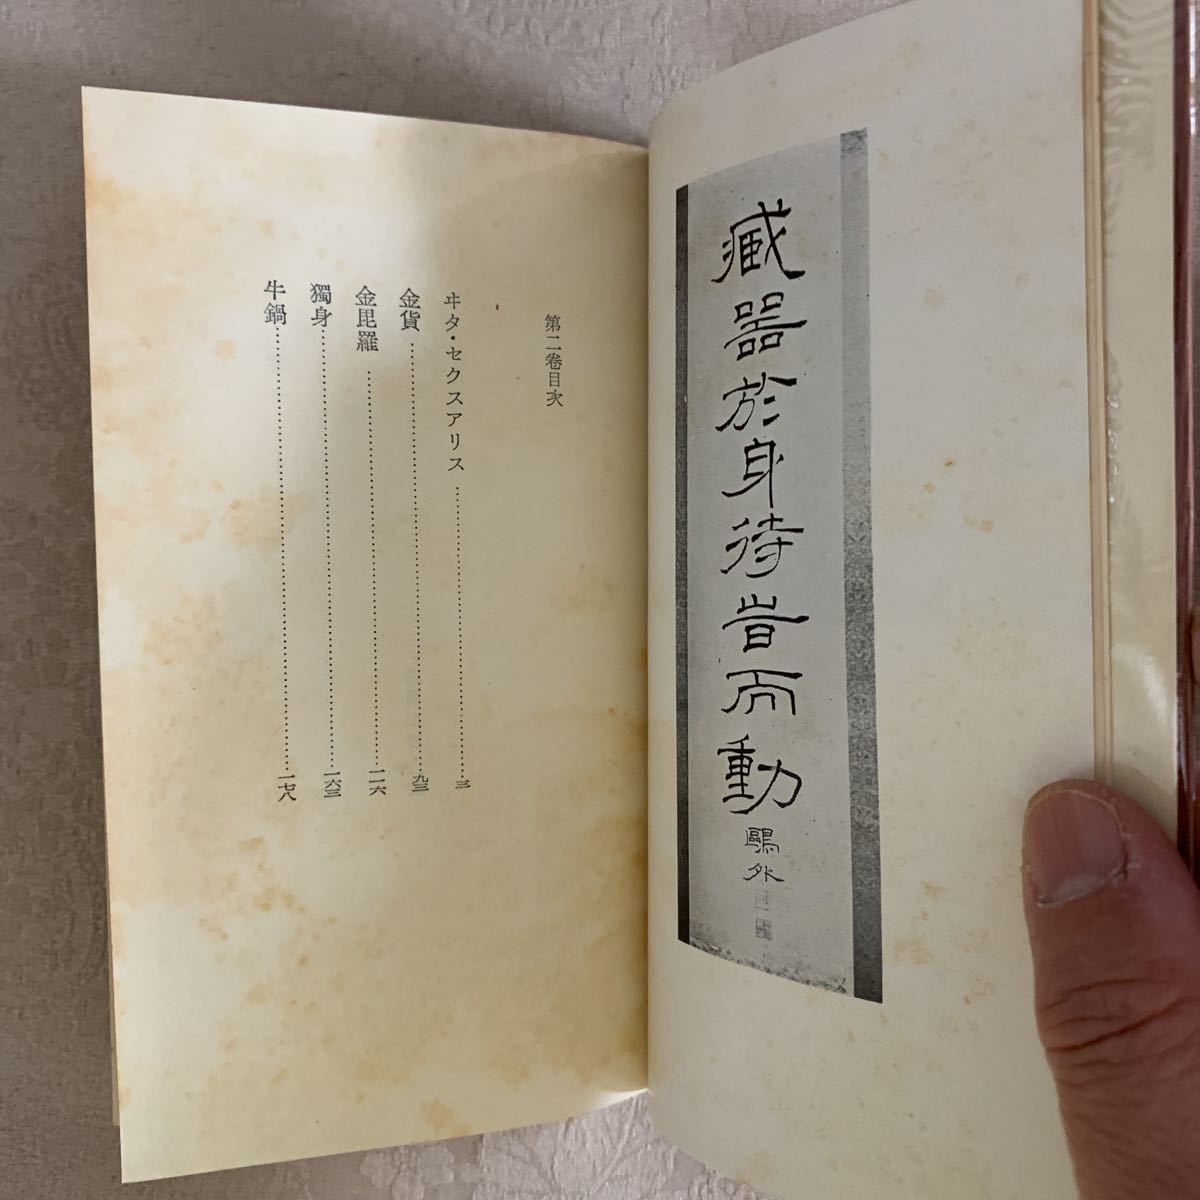 臧器於身待旹而動
鷗外
第二卷目次
ヰタ・セクスアリス……三
金貨……九三
金毘羅……一一六
獨身……一六三
牛鍋……一七八